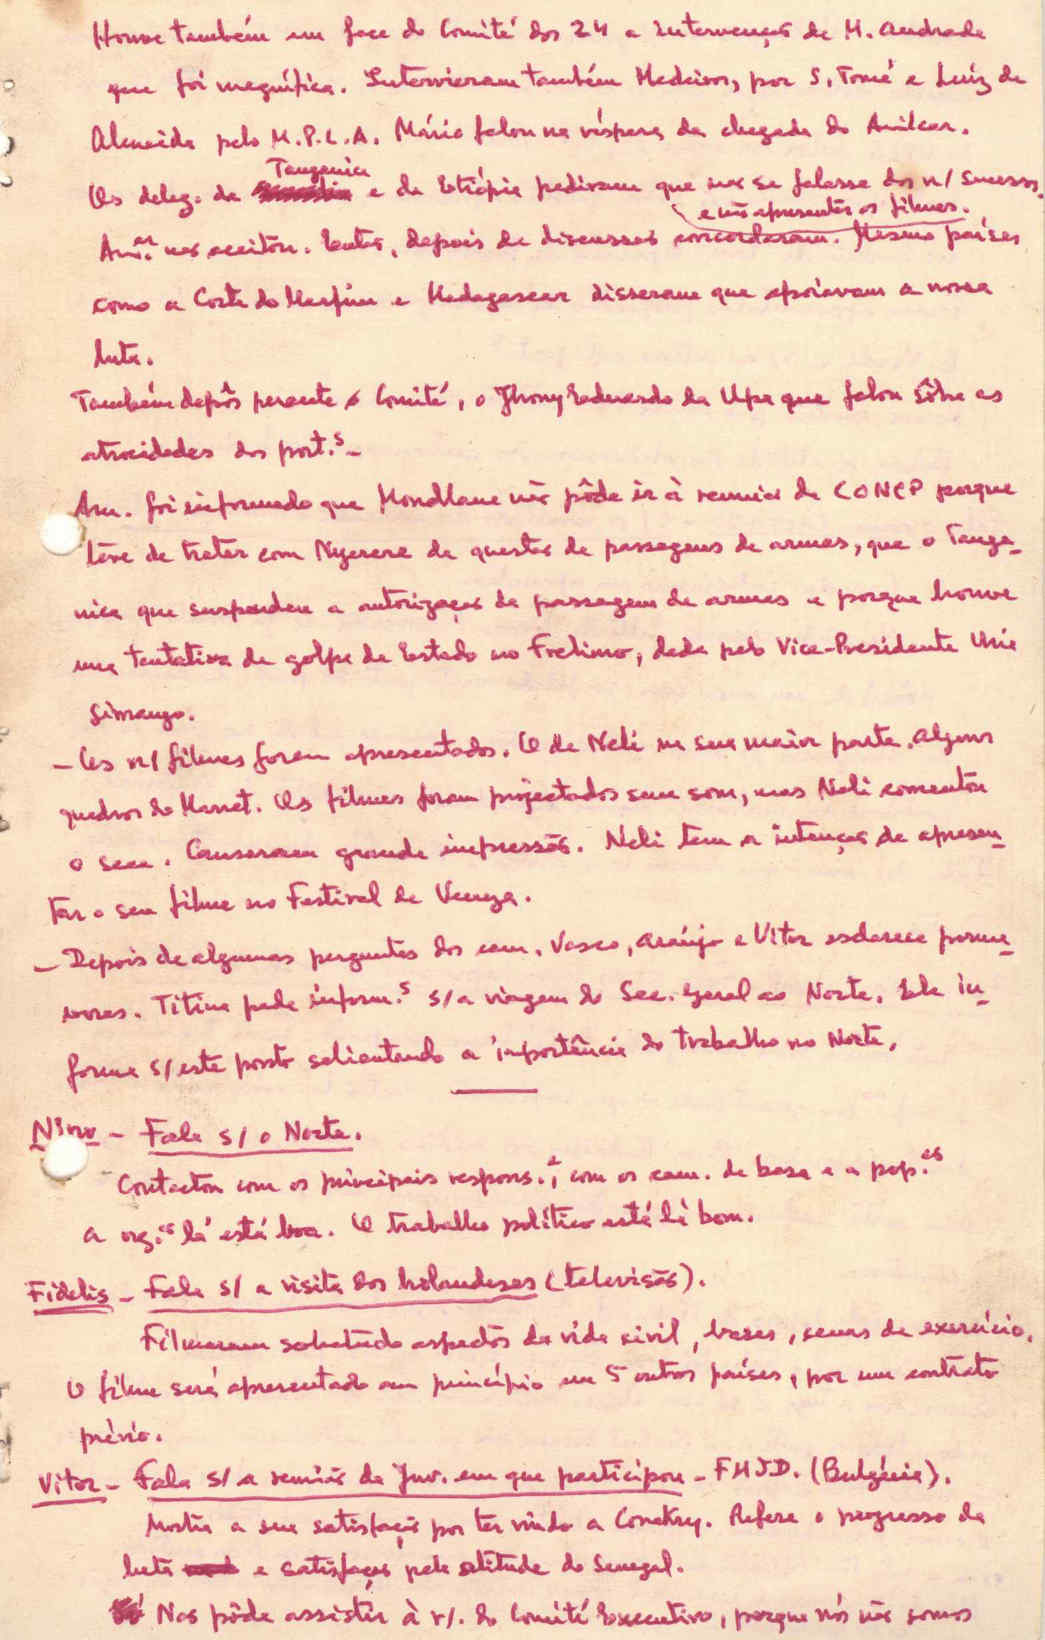 Houve também em face do Comité dos 24 a intervenção de M. Andrade
que foi magnífica. Intervieram também Medeiros, por S. Tomé e Luíz de
Almeida pelo M.P.L.A. Mário falou na véspera da chegada do Amilcar.
Tanganica
Os deleg. da e da Etiópia pediram que não se falasse dos n/ sucessos
e não apresentar os filmes.
Am.ar não aceitou. Então, depois de discussão concordaram. Mesmo países
como a Costa do Marfim e Madagascar disseram que apoiavam a nossa
luta.
Também depôs perante o Comité, o Jhony Eduardo da Upa que falou sôbre as
atrocidades dos port.s -
Am. foi informado que Mondlane não pôde ir à reunião da CONCP porque
teve de tratar com Nyerere da questão de passagens de armas, que o Tanga-
nica que suspendeu a autorização da passagem de armas e porque houve
uma tentativa de golpe de Estado no Frelimo, dada pelo Vice-Presidente Uria
Simango.
- Os n/ filmes foram apresentados. O de Neli na sua maior parte. Alguns
quadros do Marret. Os filmes foram projectados sem som, mas Neli comentou
o seu. Causaram grande impressão. Neli tem a intenção de apresen-
tar o seu filme no Festival de Veneza.
- Depois de algumas perguntas dos cam. Vasco, Araújo e Vitor esclarece porme-
nores. Titina pede inform.s s/ a viagem do Sec. Geral ao Norte. Ele in-
forma s/ este ponto salientando a importância do trabalho no Norte.
Nino - Fala s/ o Norte.
Contactou com os principais respons., com os cam. da base e a pop.ção
A org.ção lá está boa. O trabalho político está lá bom.
Fidelis - Fala s/ a visita dos holandeses (televisão).
Filmaram sobretudo aspectos da vida civil, bases, cenas de exercício.
O filme será apresentado em princípio em 5 outros países, por um contrato
prévio.
Vitor - Fala s/ a reunião da Juv. em que participou - FMJD. (Bulgária).
Mostra a sua satisfação por ter vindo a Conakry. Refere o progresso da
luta e satisfação pela atitude do Senegal.
Não pôde assistir à r/. do Comité Executivo, porque nós não somos